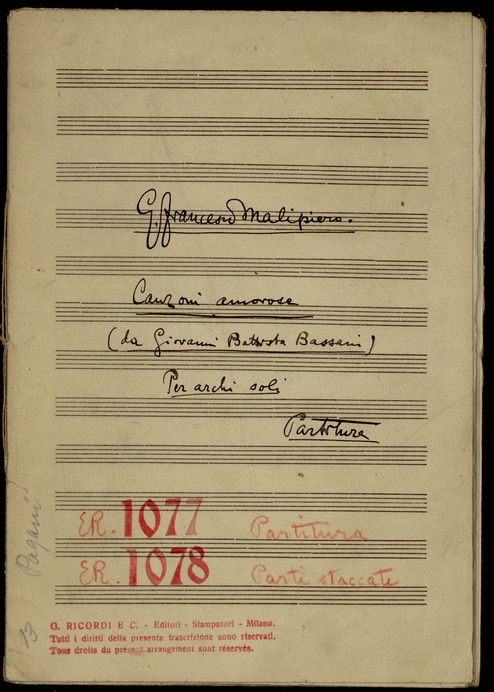 G. Francesco Malipiero.
Canzoni amorose
(da Giovanni Battista Bassani)
Per archi soli
Partitura
ER. 1077 Partitura
ER. 1078 Parti staccate
Pagani
G. RICORDI E C. - Editori - Stampatori - Milano.
Tutti i diritti della presente trascrizione sono riservati.
Tous droits du présent arrangement sont réservés.